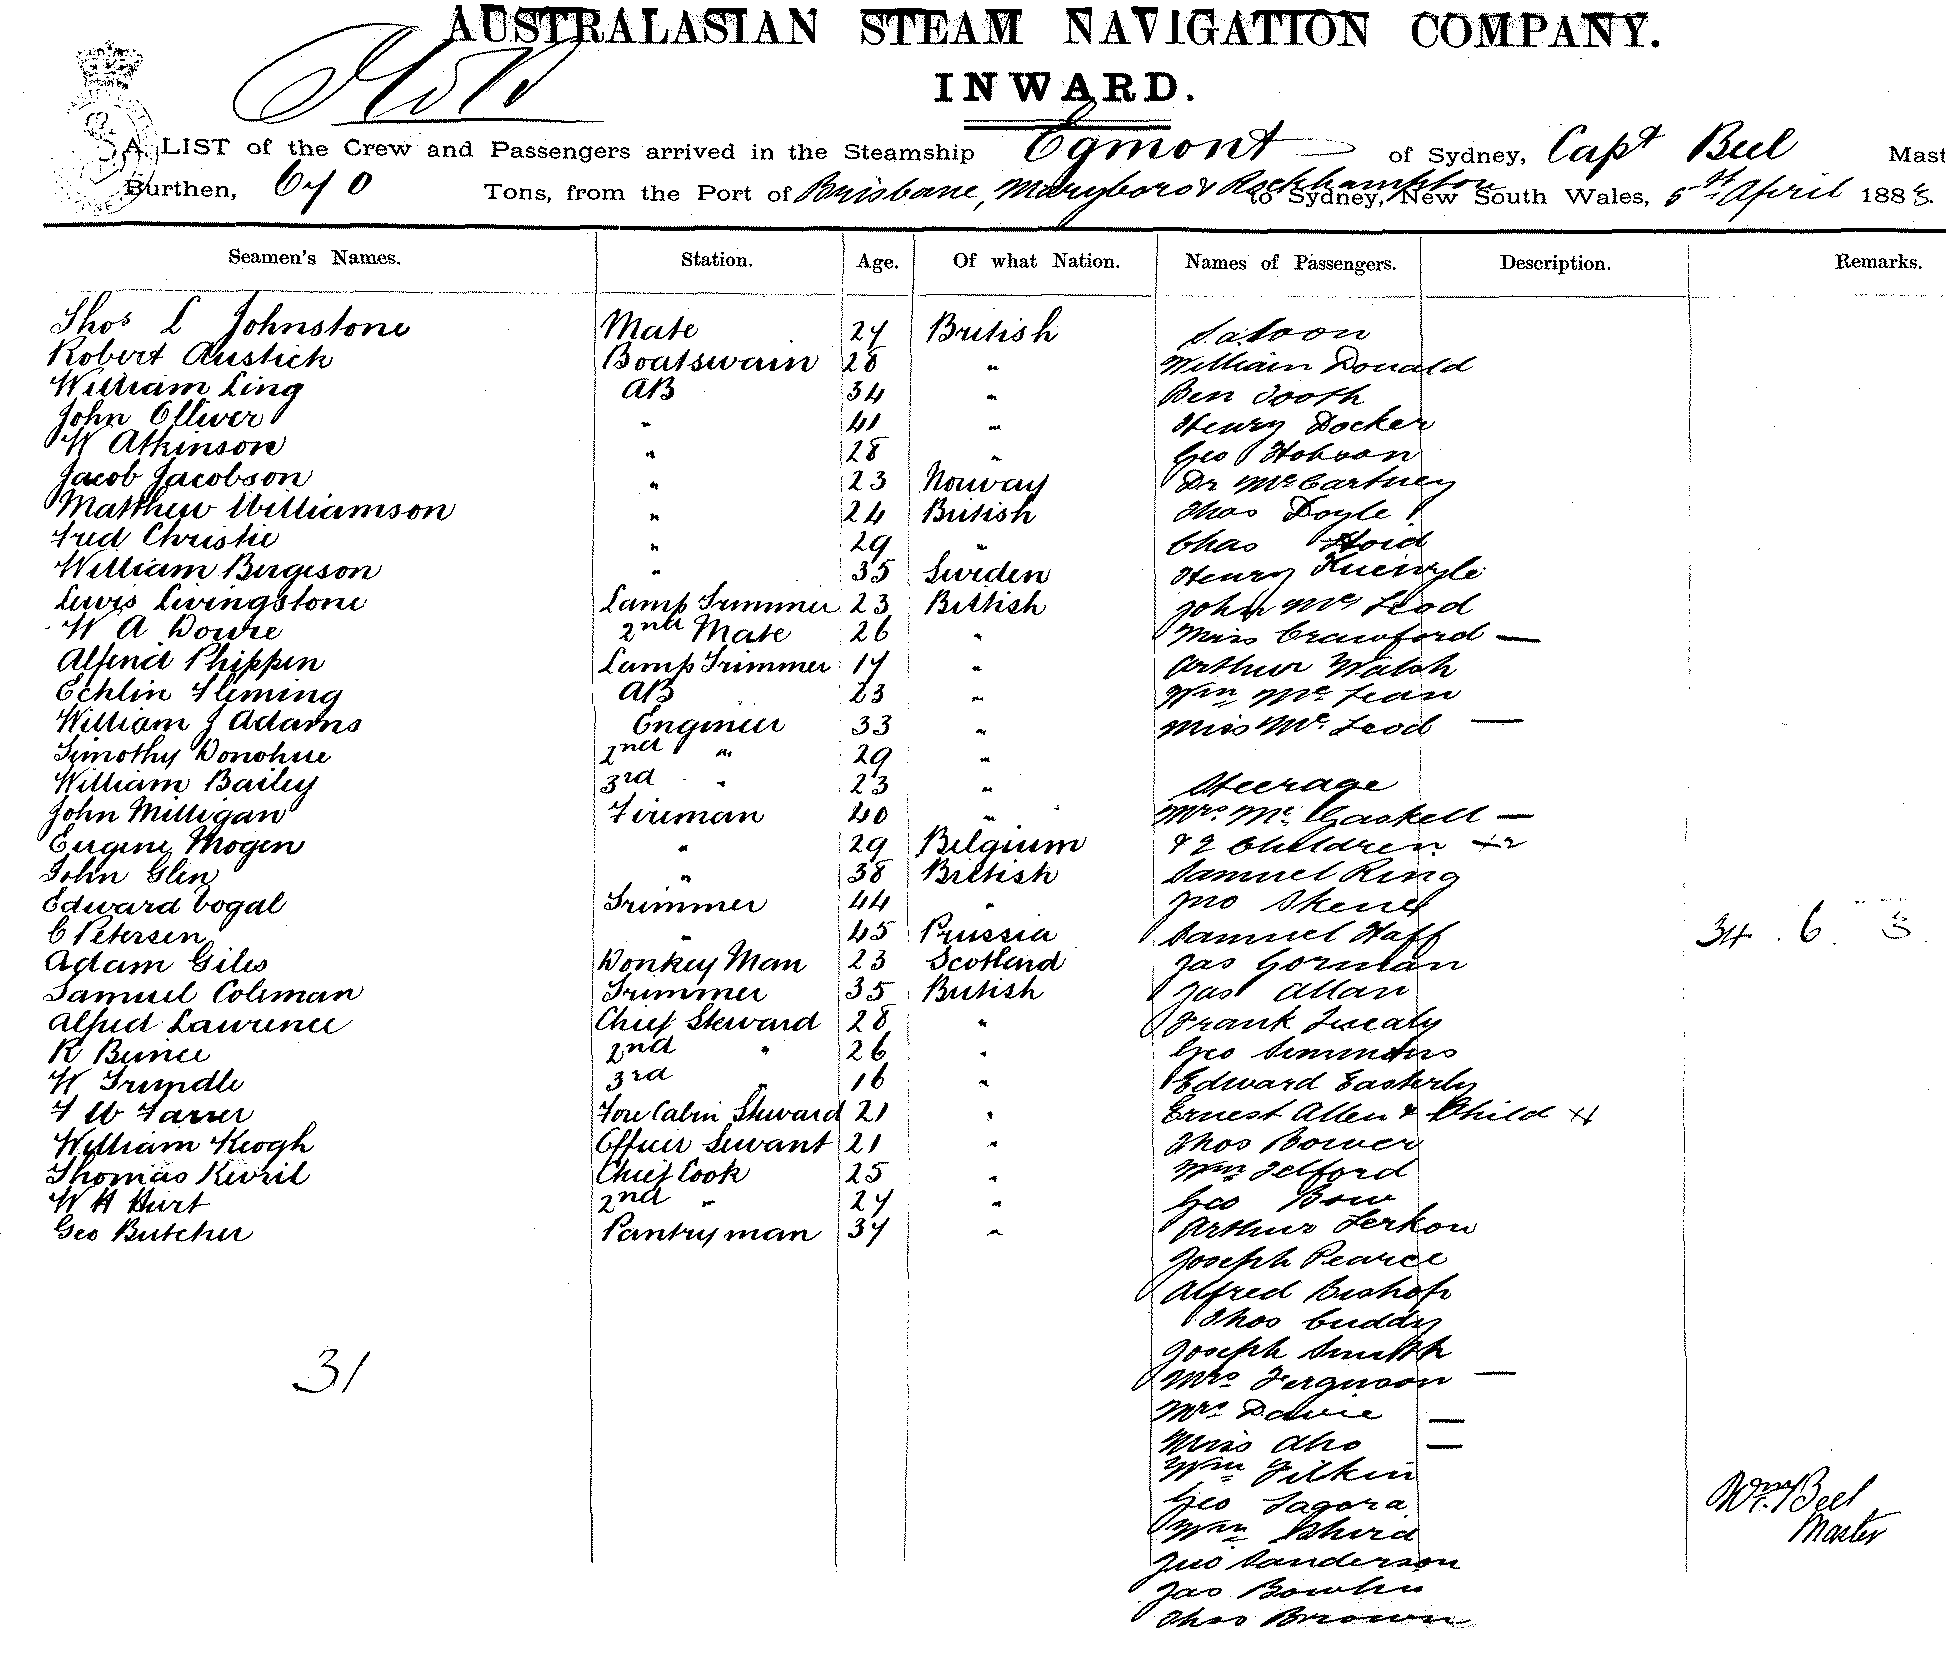 AUSTRALASIAN STEAM NAVIGATION COMPANY.
INWARD.
A LIST of the Crew and Passengers arrived in the Steamship Egmont of Sydney, Capt Beel Mast
Burthen, 670 Tons, from the Port of Brisbane, Maryboro & Rockhampton to Sydney, New South Wales, 5th April 188
Seamen's Names. Station. Age. Of what Nation. Names of Passengers. Description. Remarks.
Thos L Johnstone Mate 27 British Saloon
Robert Austick Boatswain 28 " William Donald
William Ling AB 34 " Ben Tooth
John Olliver " 41 " Henry Docker
W Atkinson " 28 " Geo Hobson
Jacob Jacobson " 23 Norway Dr McCartney
Matthew Williamson " 24 British Thos Doyle
Fred Christie " 29 " Chas Hoid
William Bergeson " 35 Sweden Henry
Lewis Livingstone Lamp Trimmer 23 British John Mc Leod
W A Dowie 2nd Mate 26 " Miss Crawford —
Alfred Phippen Lamp Trimmer 17 " Arthur Walsh
Echlin Fleming AB 23 " Wm Mc Lean
William J Adams Engineer 33 " Miss Mc Leod —
Timothy Donohue 2nd " 29 "
William Bailey 3rd " 23 " Steerage
John Milligan Fireman 40 " Mrs Mc Gaskell —
Eugene Mogen " 29 Belgium & 2 Children +2
John Glen " 38 British Samuel Ring
Edward Vogal Trimmer 44 " Jno Skene
C Petersen " 45 Prussia Samuel Haff 34 . 6 . 3
Adam Giles Donkey Man 23 Scotland Jas Gorman
Samuel Coleman Trimmer 35 British Jas Allan
Alfred Lawrence Chief Steward 28 " Frank
R Bunce 2nd " 26 " Geo Simmons
W Trundle 3rd " 16 " Edward Easterly
F W Farrer Fore Cabin Steward 21 " Ernest Allen & Child +1
William Keogh Officer Servant 21 " Thos Bower
Thomas Kevril Chief Cook 25 " Wm Telford
W H Hurt 2nd " 27 " Geo Bow
Geo Butcher Pantryman 37 " Arthur Lerkon
Joseph Pearce
Alfred Bishop
Thos Cuddy
Joseph Smith
31 Mrs Ferguson —
Mrs Davie —
Miss do —
Wm Filkin
Geo Sagora
Wm
Jno Sanderson
Jas Bowlin
Thos Brown
Wm Beel
Master